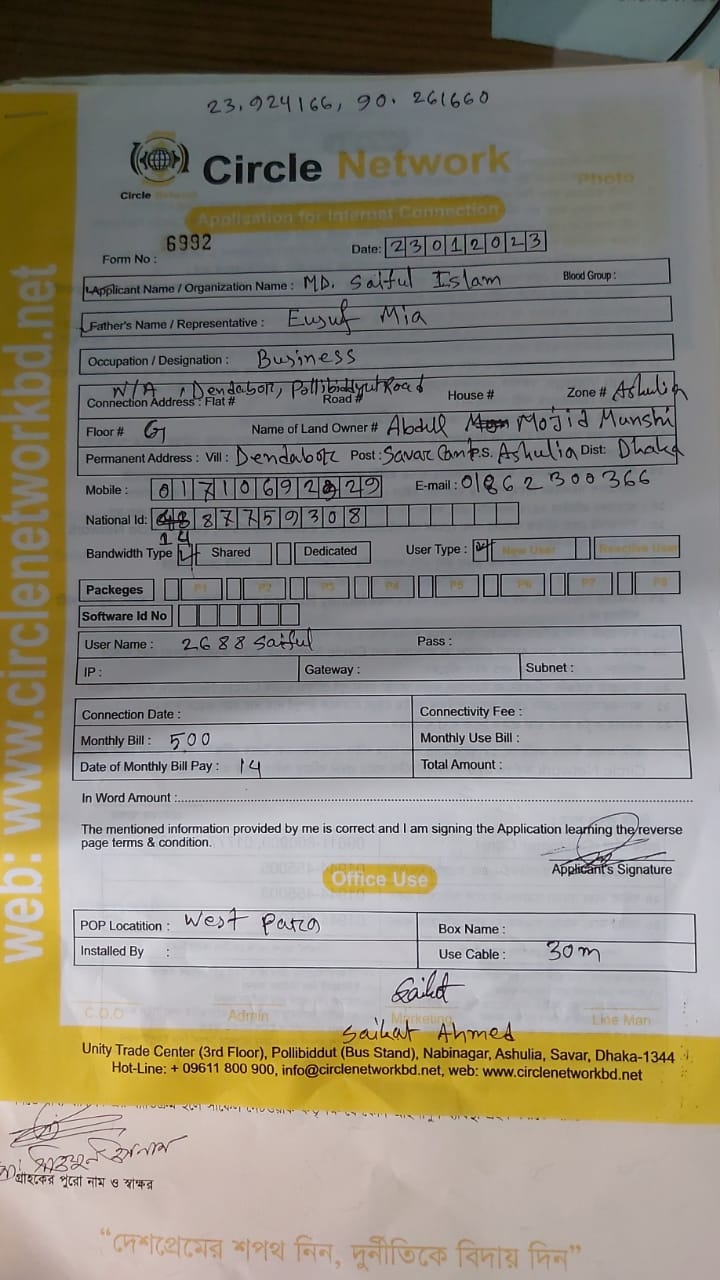 23.924166, 90.261660
Circle Network
Circle Network
Photo
Application for Internet Connection
Form No : 6992
Date: 23012023
Applicant Name / Organization Name : MD. Saiful Islam Blood Group :
Father's Name / Representative : Eusuf Mia
Occupation / Designation : Business
N/A , Dendabor, Road Ashulia
Connection Address : Flat # Road # House # Zone #
Floor # G Name of Land Owner # Abdul Mojid Munshi
Permanent Address : Vill : Dendabor Post : Savar P.S. Ashulia Dist: Dhaka
Mobile : 0171069 29 E-mail : 01862300366
National Id: 8877759308
14
Bandwidth Type Shared Dedicated User Type : New User Reactive User
Packeges P1 P2 P3 P4 P5 P6 P7 P8
Software Id No
User Name : 2688 saiful Pass :
IP : Gateway : Subnet :
Connection Date : Connectivity Fee :
Monthly Bill : 500 Monthly Use Bill :
Date of Monthly Bill Pay : 14 Total Amount :
In Word Amount :
The mentioned information provided by me is correct and I am signing the Application learning the reverse
page terms & condition.
Applicant's Signature
Office Use
POP Locatition : West Para Box Name :
Installed By : Use Cable : 30m
Saikat
C.O.O Admin Marketing Line Man
Saikat Ahmed
Unity Trade Center (3rd Floor), Pollibiddut (Bus Stand), Nabinagar, Ashulia, Savar, Dhaka-1344
Hot-Line: + 09611 800 900, info@circlenetworkbd.net, web: www.circlenetworkbd.net
web: www.circlenetworkbd.net
গ্রাহকের পুরো নাম ও স্বাক্ষর
“দেশপ্রেমের শপথ নিন, দুর্নীতিকে বিদায় দিন”